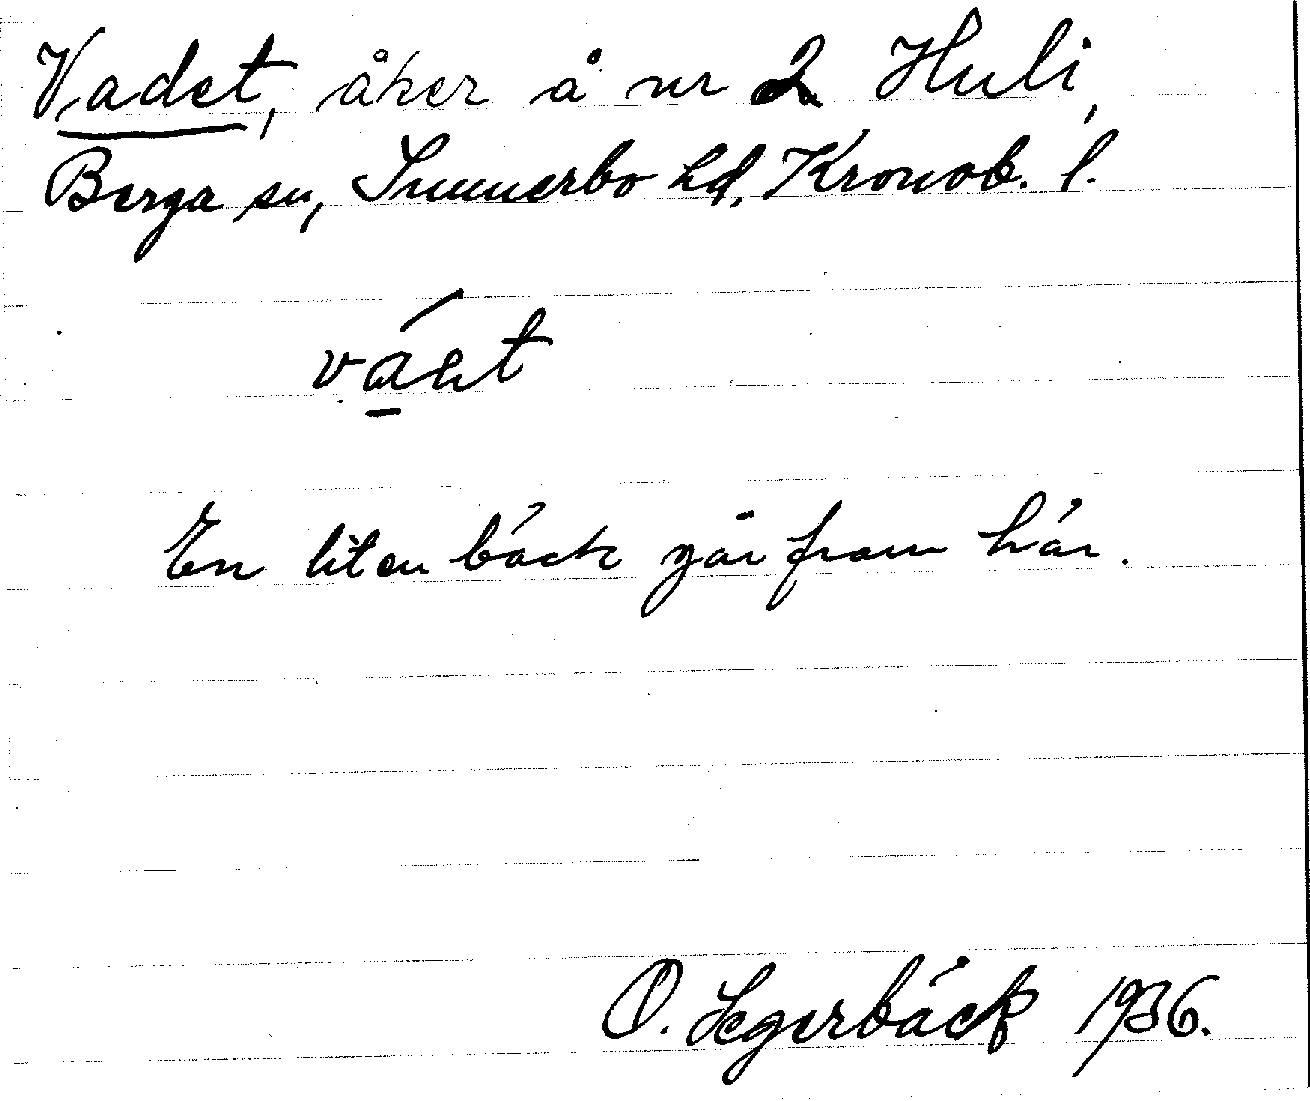 Vadet, åker å nr 2 Huli,
Berga sn, Sunnerbo hd, Kronob. l.
En liten bäck går fram här.
O. Segerbäck 1936.